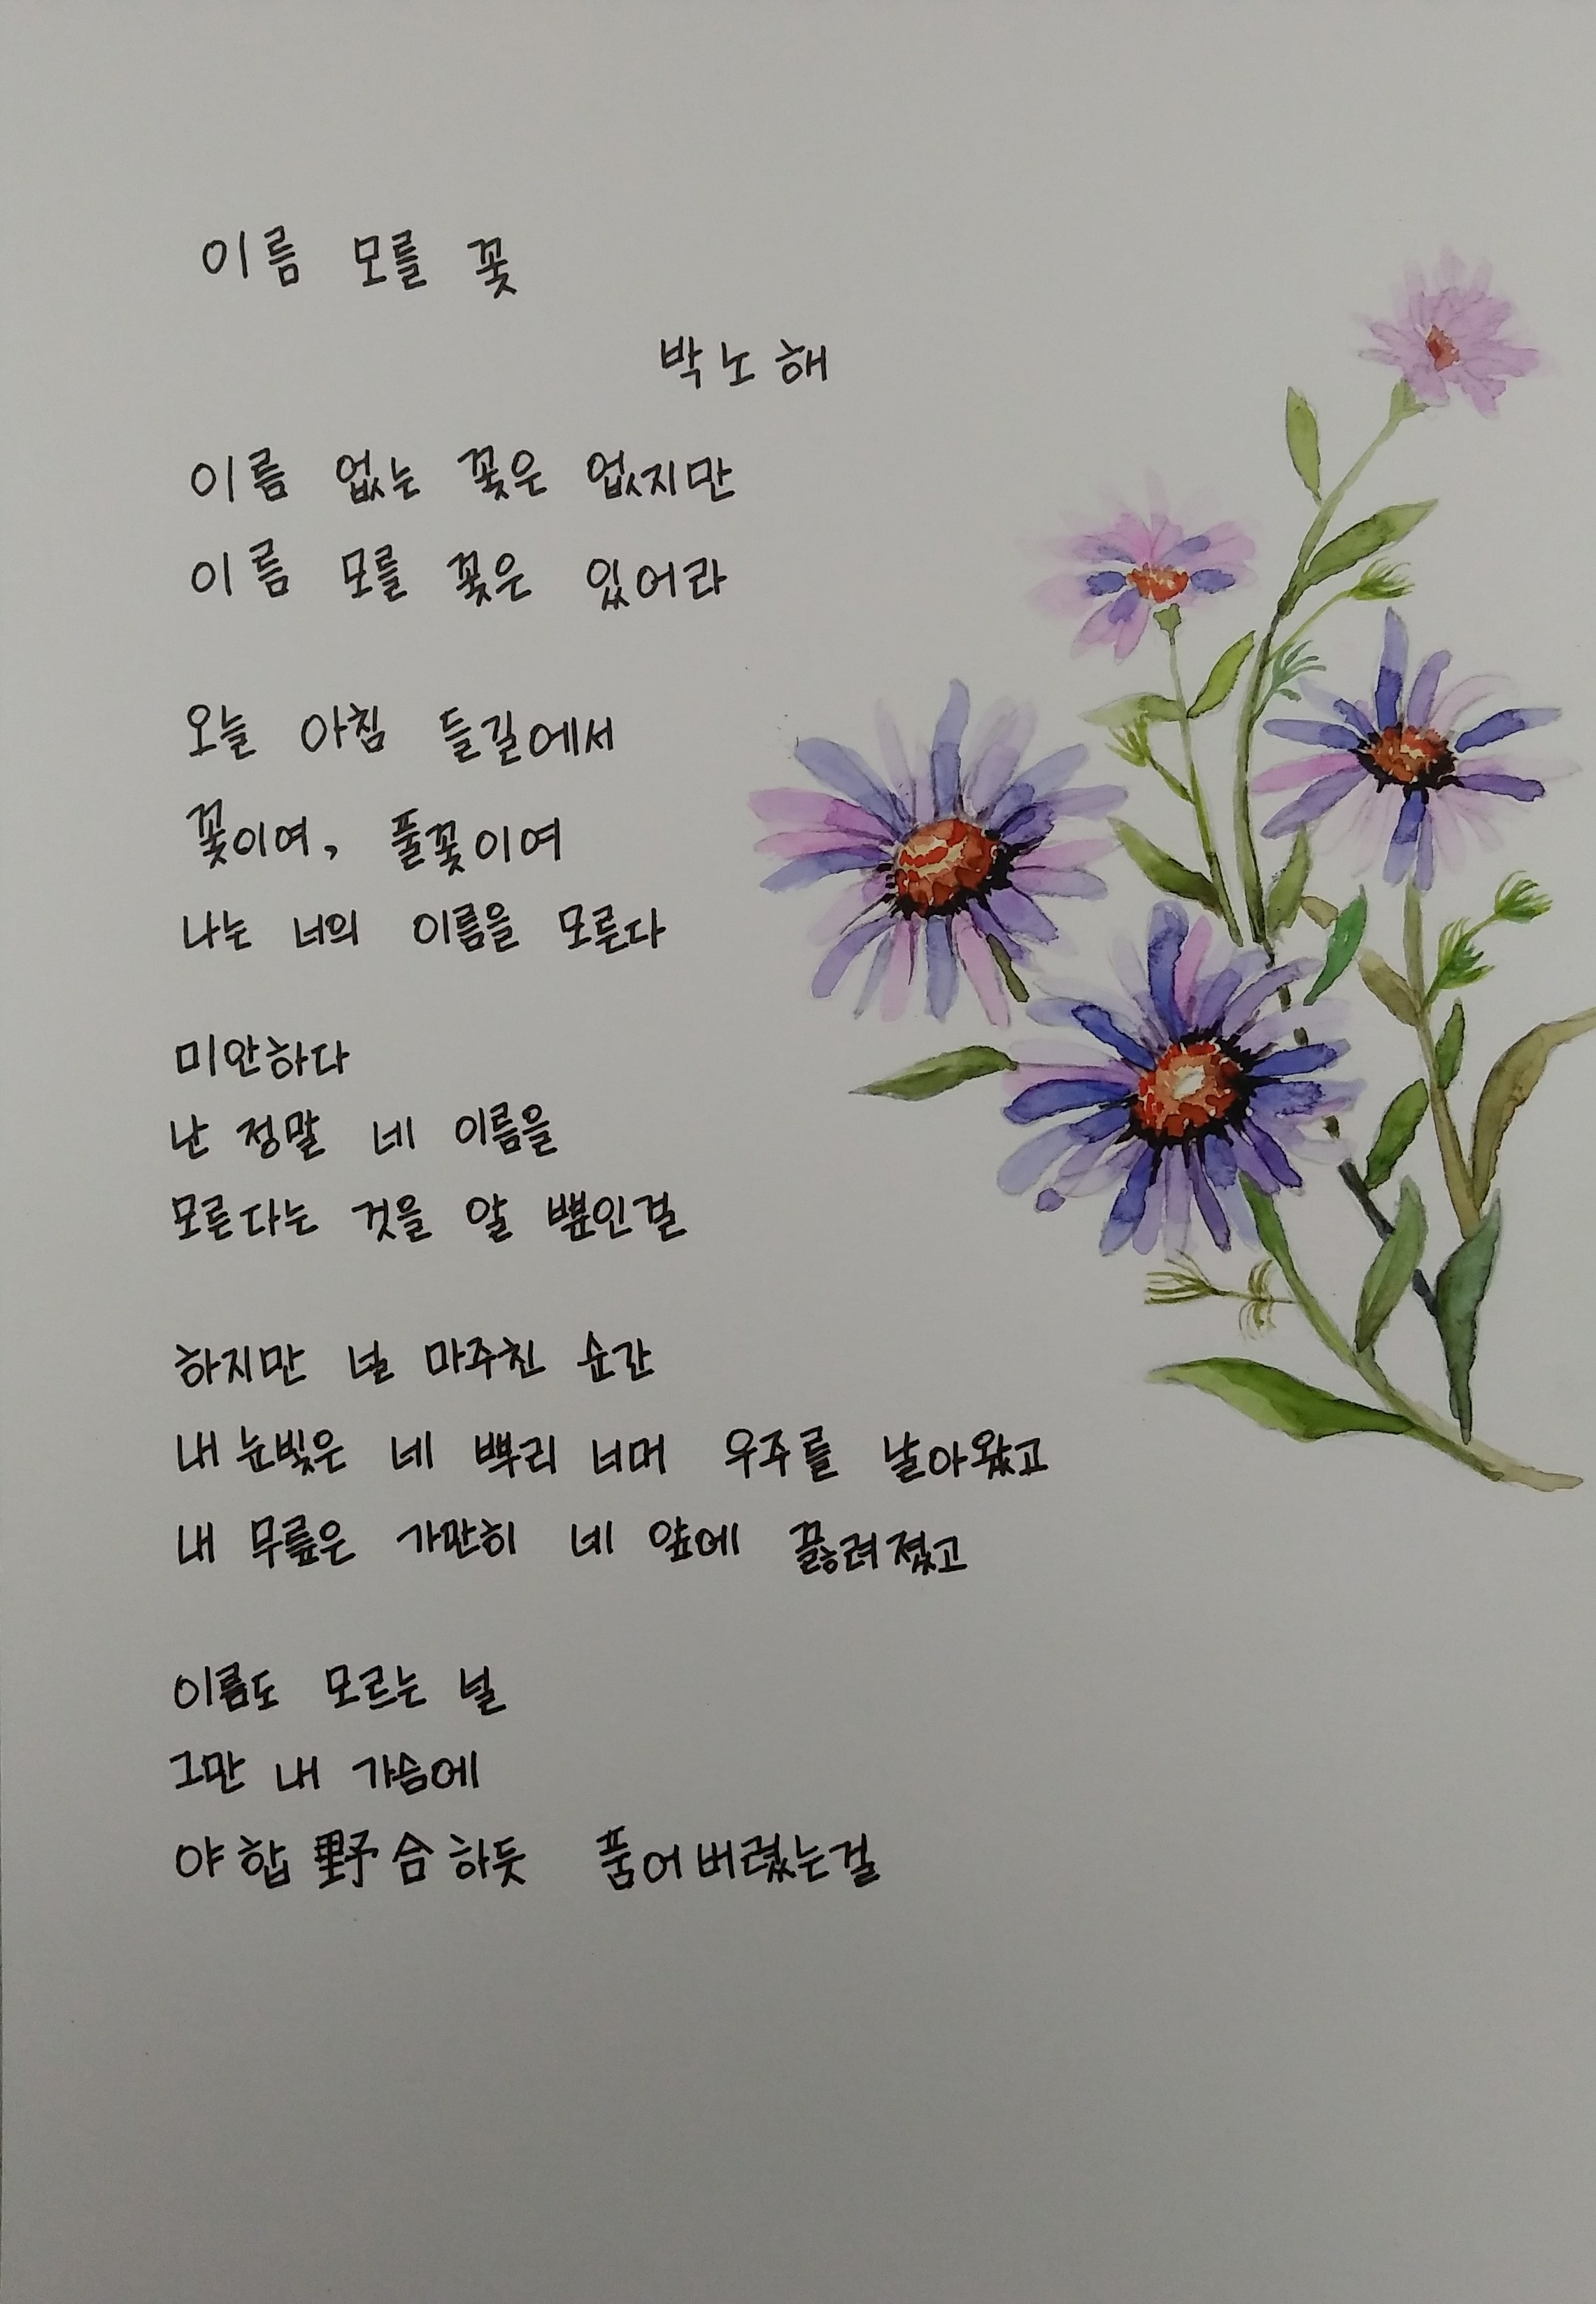 이름 모를 꽃
박노해
이름 없는 꽃은 없지만
이름 모를 꽃은 있어라
오늘 아침 들길에서
꽃이여, 풀꽃이여
나는 너의 이름을 모른다
미안하다
난 정말 네 이름을
모른다는 것을 알 뿐인걸
하지만 널 마주친 순간
내 눈빛은 네 뿌리 너머 우주를 날아왔고
내 무릎은 가만히 네 앞에 끓려졌고
이름도 모르는 널
그만 내 가슴에
야합野合하듯 품어버렸는걸